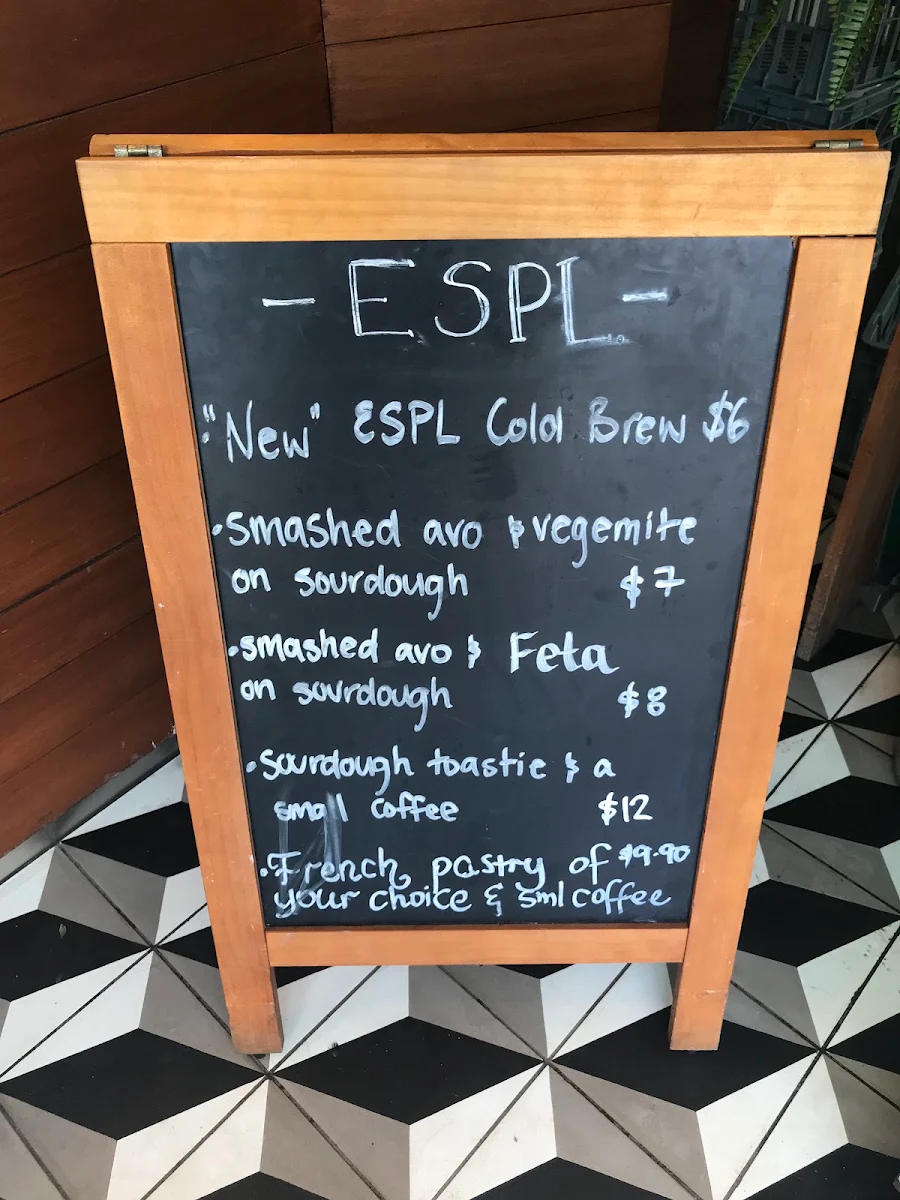 - ESPL -
"New" ESPL Cold Brew $6
•smashed avo & vegemite
on sourdough $7
•smashed avo & Feta
on sourdough $8
•sourdough toastie & a
small coffee $12
•French pastry of $9.90
your choice & sml coffee